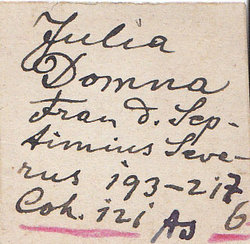 Julia
Domna
Frau d. Sep-
timius Seve-
rus 193-217
Coh. 121 As 6